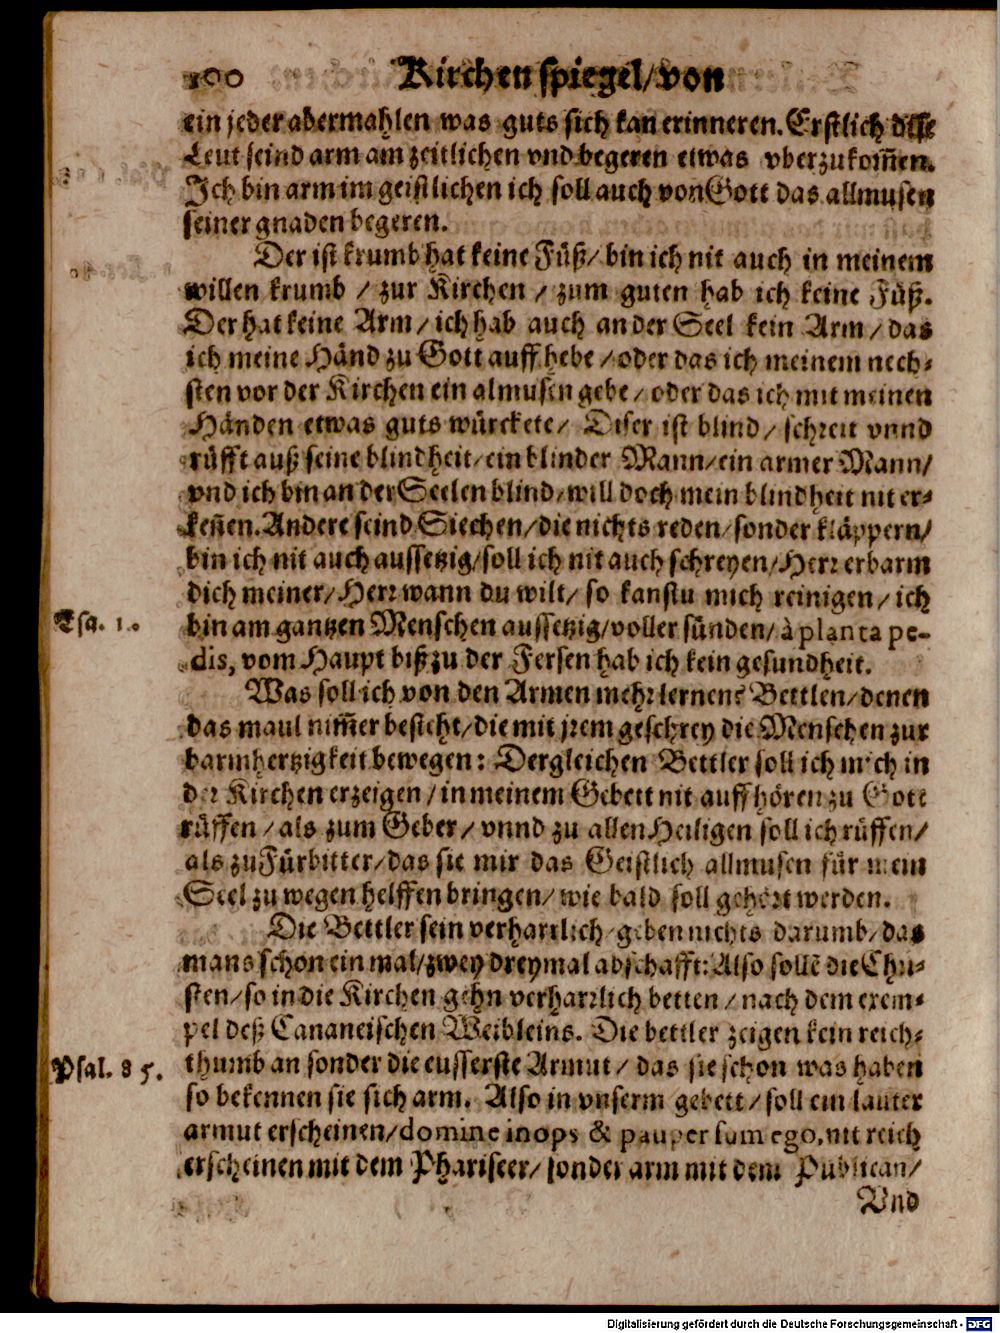 100 Kirchenspiegel/von
ein jeder abermahlen was guts sich kan erinneren. Erstlich dise
Leut seind arm am zeitlichen vnd begeren etwas vberzukom̃en.
Ich bin arm im geistlichen ich soll auch von Gott das allmusen
seiner gnaden begeren.
Der ist krumb hat keine Füß/ bin ich nit auch in meinem
willen krumb / zur Kirchen / zum guten hab ich keine Füß.
Der hat keine Arm/ ich hab auch an der Seel kein Arm/ das
ich meine Händ zu Gott auff hebe / oder das ich meinem nech-
sten vor der Kirchen ein almusen gebe/ oder das ich mit meinen
Händen etwas guts würckete/ Diser ist blind/ schreit vnnd
rüfft auß seine blindheit/ ein blinder Mann/ ein armer Mann/
vnd ich bin an der Seelen blind/ will doch mein blindheit nit er-
keñen. Andere seind Siechen/ die nichts reden/ sonder kläppern/
bin ich nit auch aussetzig/ soll ich nit auch schreyen/ Herr erbarm
dich meiner/ Herr wann du wilt/ so kanstu mich reinigen/ ich
Isa. 1. bin am gantzen Menschen aussetzig/ voller sünden/ à planta pe-
dis, vom Haupt biß zu der Fersen hab ich kein gesundheit.
Was soll ich von den Armen mehr lernen? Bettlen/ denen
das maul nim̃er besteht/ die mit jrem geschrey die Menschen zur
barmhertzigkeit bewegen: Dergleichen Bettler soll ich mich in
der Kirchen erzeigen / in meinem Gebett nit auff hören zu Gott
rüffen / als zum Geber/ vnnd zu allen Heiligen soll ich rüffen/
als zu Fürbitter/ das sie mir das Geistlich allmusen für mein
Seel zu wegen helffen bringen/ wie bald soll gehört werden.
Die Bettler sein verharrlich/ geben nichts darumb/ das
mans schon ein mal/ zwey dreymal abschafft: Also sollẽ die Chri-
sten/ so in die Kirchen gehn verharrlich betten / nach dem exem-
pel deß Cananeischen Weibleins. Die bettler zeigen kein reich-
Psal. 85. thumb an sonder die eusserste Armut / das sie schon was haben
so bekennen sie sich arm. Also in vnserm gebett / soll ein lauter
armut erscheinen/ domine inops & pauper sum ego, nit reich
erscheinen mit dem Phariseer/ sonder arm mit dem Publican/
Vnd
Digitalisierung gefördert durch die Deutsche Forschungsgemeinschaft - DFG